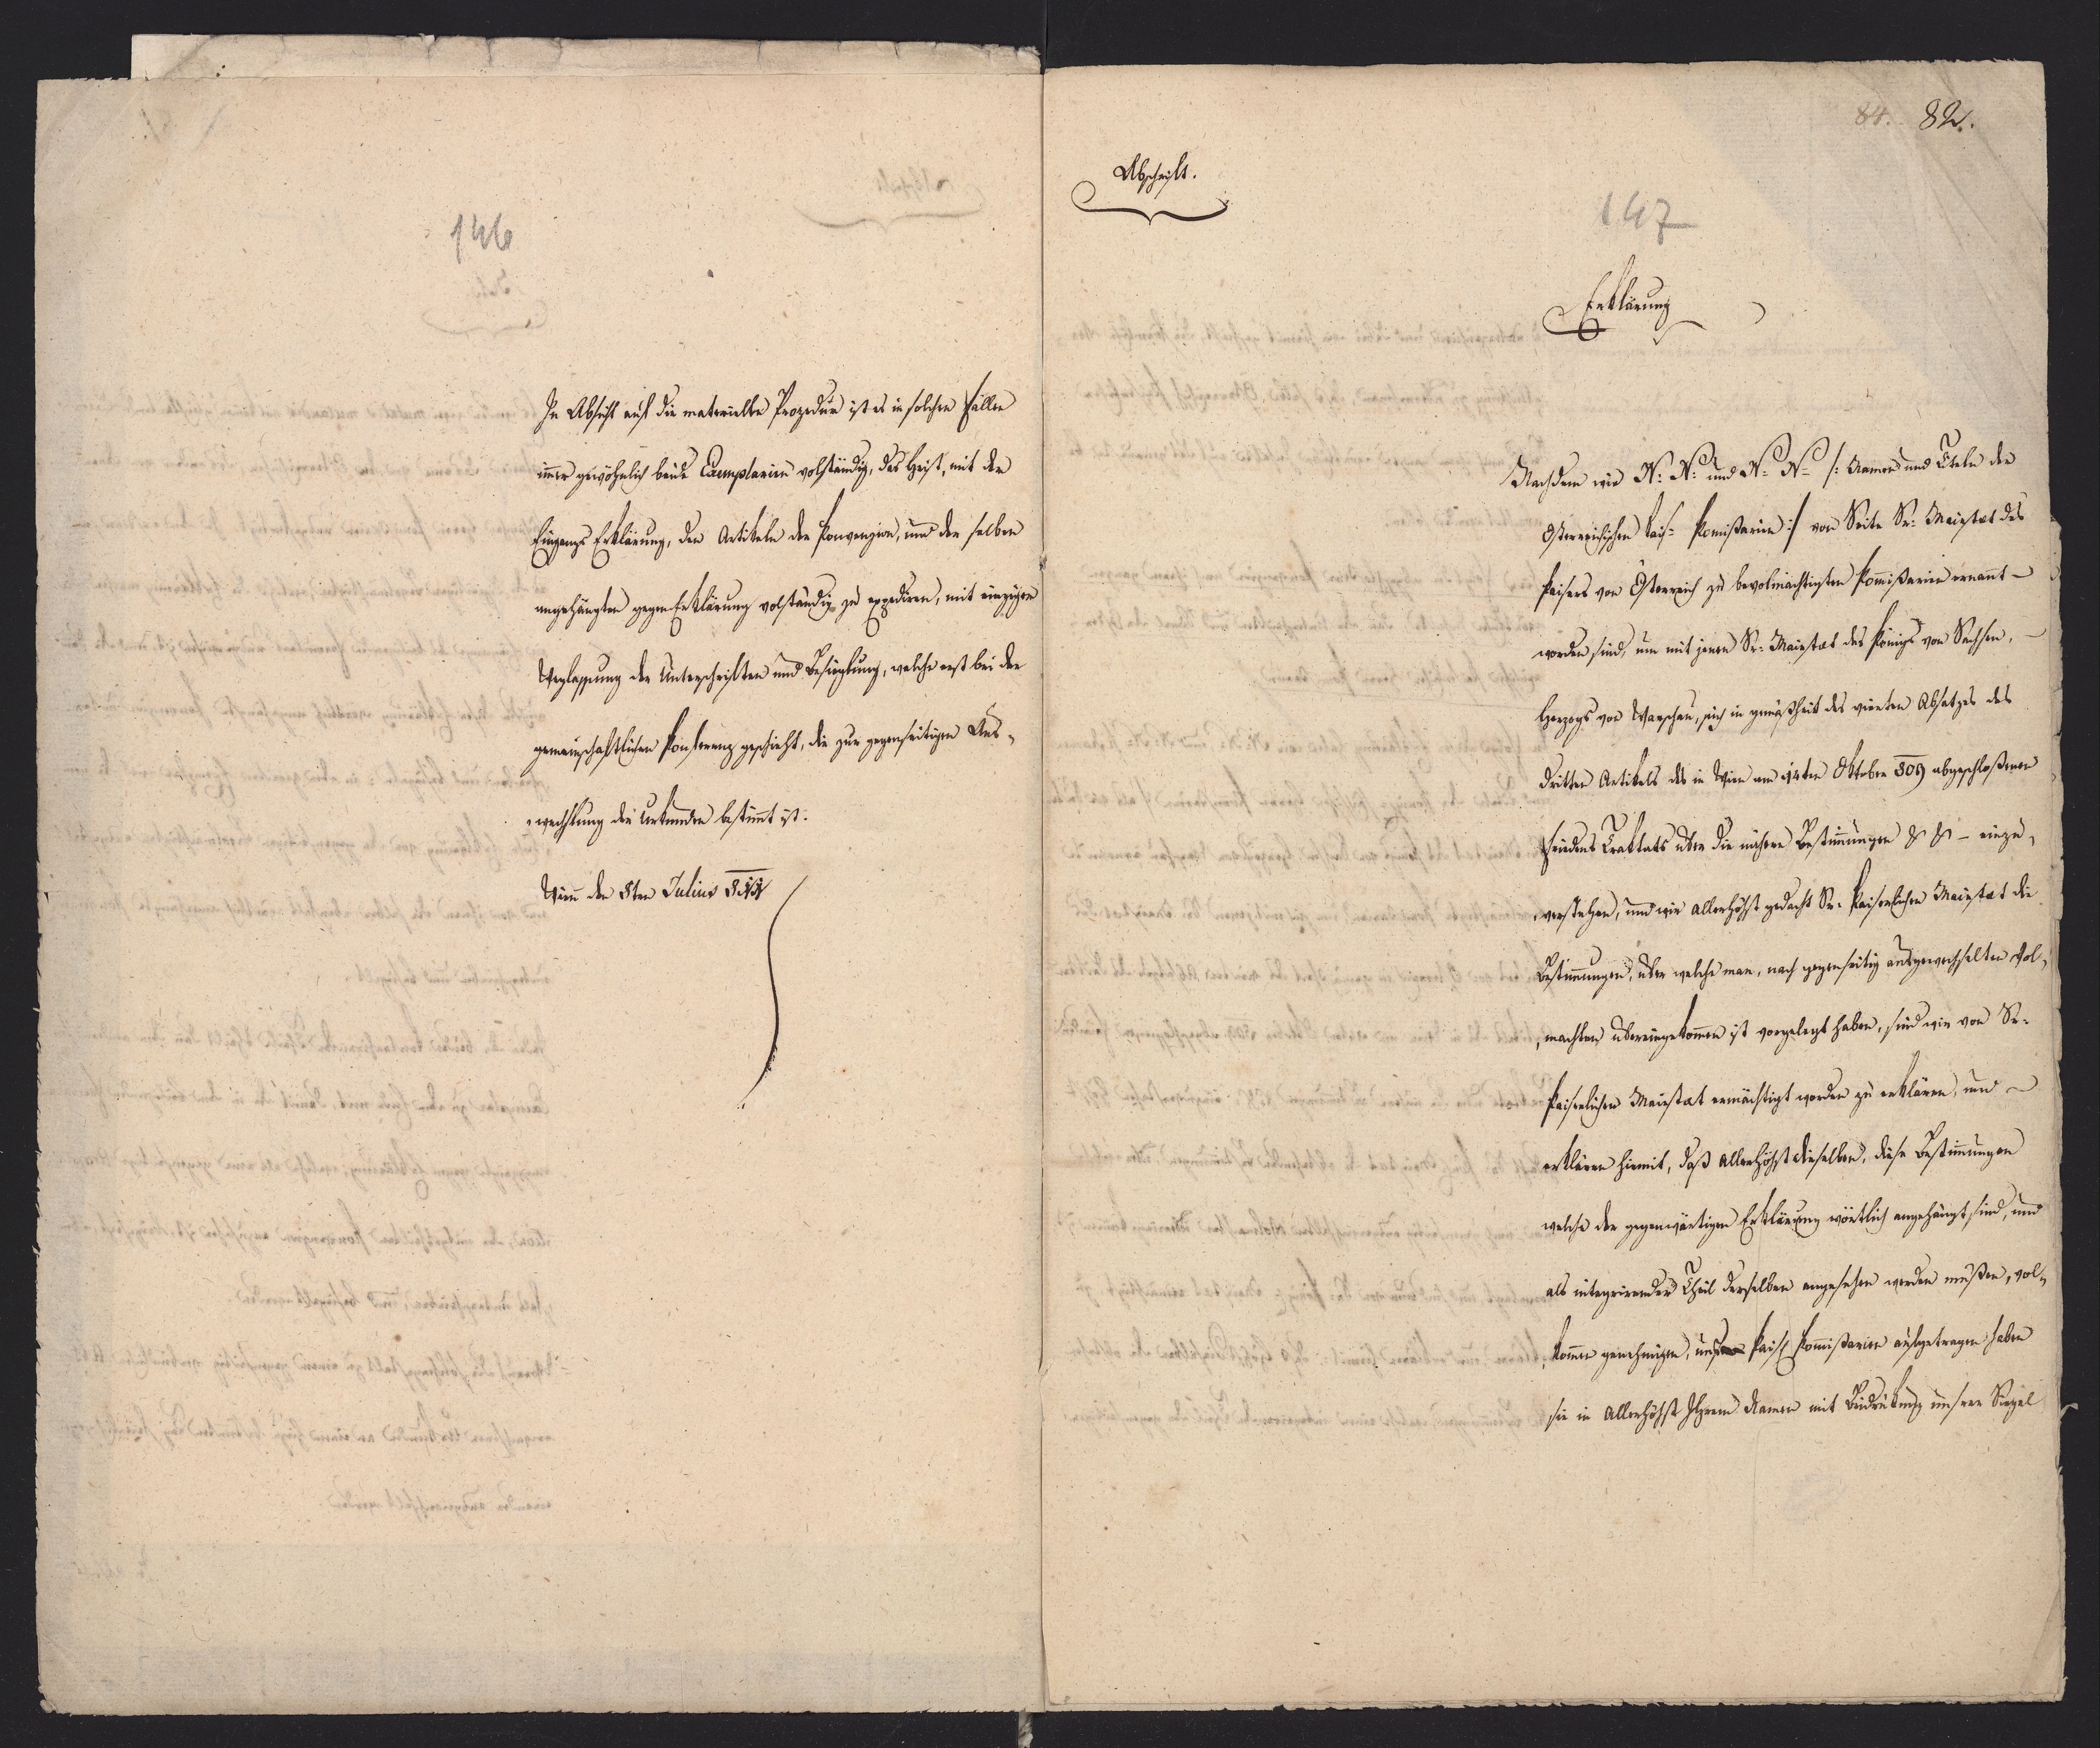 146
In Absicht auf die materielle Prozedur ist es in solchen Fällen
immer gewöhnlich beide Exemplarien volständig, das heist, mit der
Eingangs Erklärung, den Artikeln der Konvenzion, und der selben
angehängten gegen Erklärung volständig zu expediren, mit einziger
Weglassung der Unterschriften und Besieglung, welche erst bei der
gemeinschaftlichen Konferenz geschieht, die zur gegenseitigen Aus„
„wechslung der Urkunden bestimmt ist.
Wien den 8ten Julius 811
84. 82.
Abschrift.
147
Erklärung
Nachdem wir N: N: und N: N: /: Namen und Titeln der
Österreichischen kais: Komißarien :/ von Seite Sr: Maiestät des
Kaisers von Österreich zu bevolmächtigten Kommißarien ernannt –
worden sind, um mit jenen Sr: Maiestät des Königs von Sachsen, –
Herzogs von Warschau, sich in gemäßheit des vierten Absatzes des
dritten Artikels des in Wien am 14ten Oktober 809 abgeschloßenen
Friedens Traktats über die nähere Bestimmungen & & – einzu„
„verstehen, und wir allerhöchst gedacht Sr. Kaiserlichen Maiestät die
Bestimmungen, über welche man, nach gegenseitig ausgewechselten Vol„
„machten übereingekommen ist vorgelegt haben, sind wir von Sr:
Kaiserlichen Maiestät ermächtigt worden zu erklären, und –
erklären hiemit, daß allerhöchst dieselben, diese Bestimmungen
welche der gegenwärtigen Erklärung wörtlich angehängt sind, und
als integrirender Theil derselben angesehen werden müßen, vol„
„kommen genehmigen, uns kais: Kommißarien aufgetragen haben
sie in allerhöchst Ihrem Namen mit Beidrückung unserer Siegel